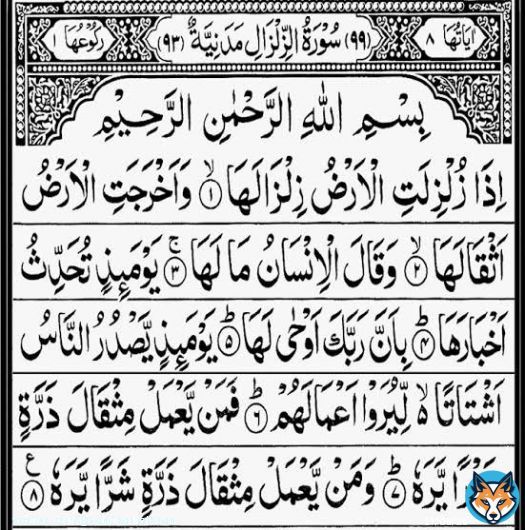 اٰيَاتُهَا ٨ (٩٩) سُوْرَةُ الزِّلْزَالِ مَدَنِيَّةٌ (٩٣) رُكُوْعُهَا ١
بِسْمِ اللّٰهِ الرَّحْمٰنِ الرَّحِيْمِ
اِذَا زُلْزِلَتِ الْاَرْضُ زِلْزَالَهَا ۙ ١ وَاَخْرَجَتِ الْاَرْضُ
اَثْقَالَهَا ۙ ٢ وَقَالَ الْاِنْسَانُ مَا لَهَا ۚ ٣ يَوْمَئِذٍ تُحَدِّثُ
اَخْبَارَهَا ؕ ٤ بِاَنَّ رَبَّكَ اَوْحٰى لَهَا ؕ ٥ يَوْمَئِذٍ يَّصْدُرُ النَّاسُ
اَشْتَاتًا ۙ۬ لِّيُرَوْا اَعْمَالَهُمْ ؕ ٦ فَمَنْ يَّعْمَلْ مِثْقَالَ ذَرَّةٍ
خَيْرًا يَّرَهٗ ؕ ٧ وَمَنْ يَّعْمَلْ مِثْقَالَ ذَرَّةٍ شَرًّا يَّرَهٗ ٨ ع